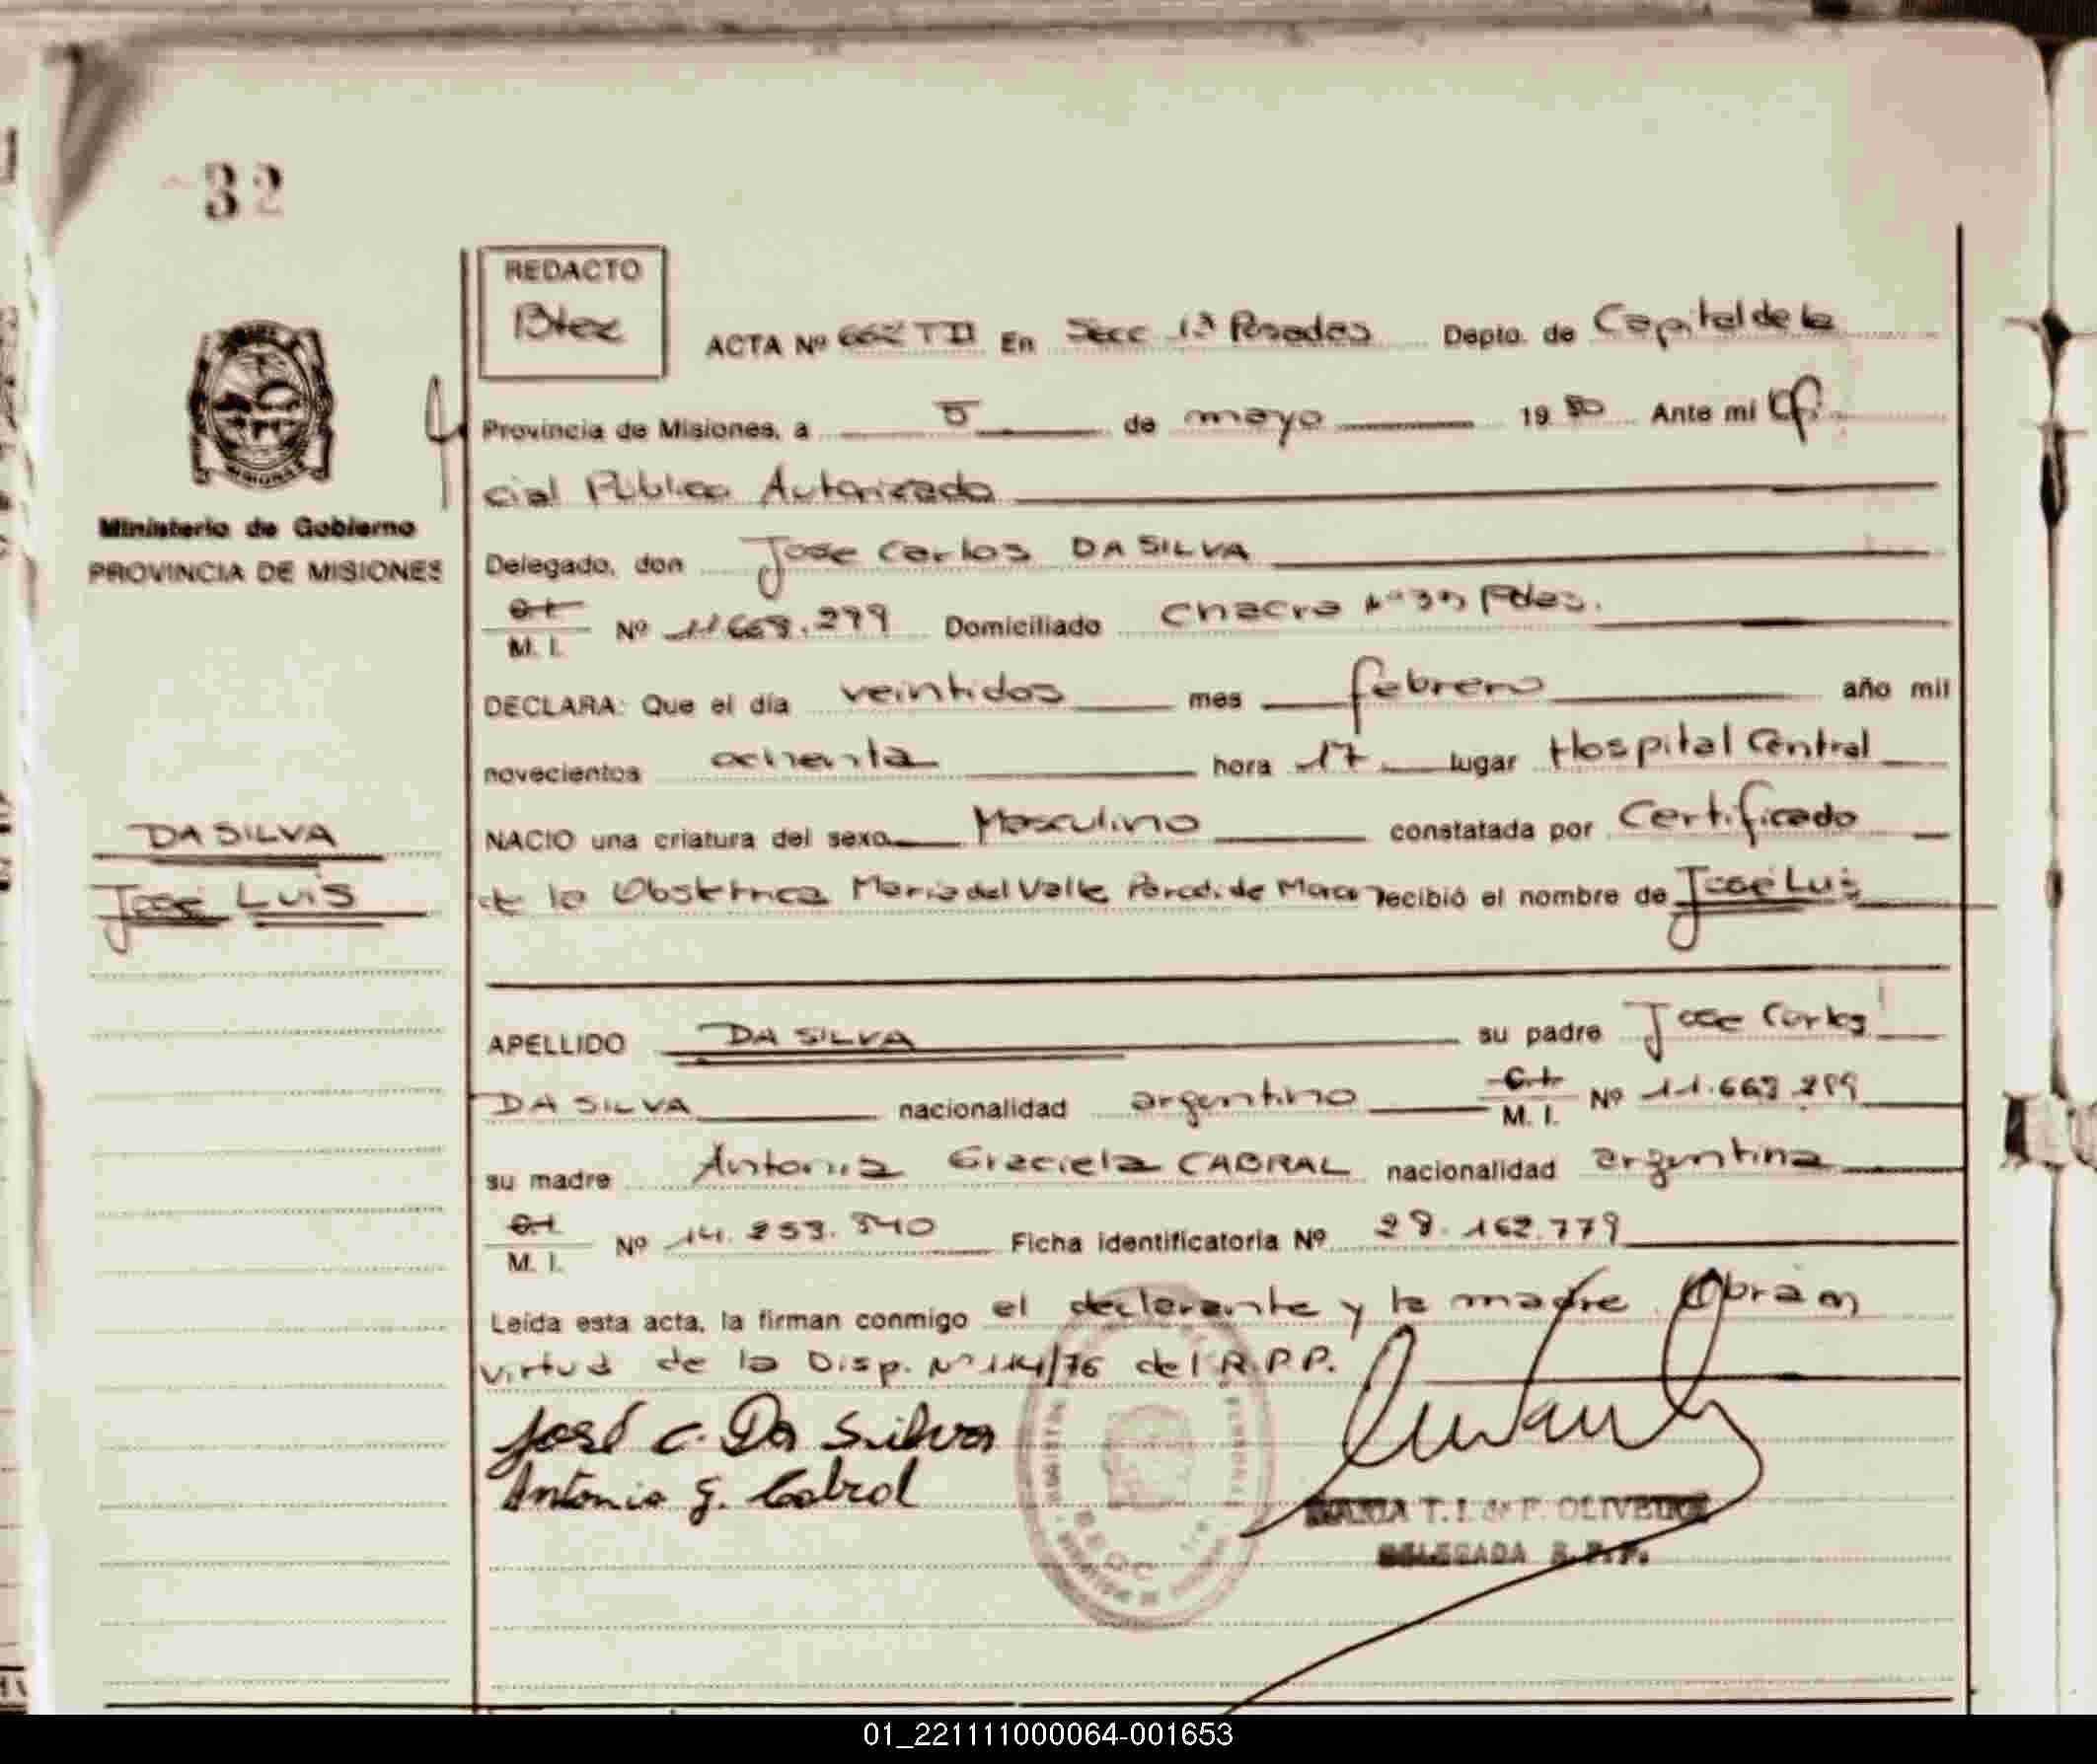 32
REDACTO
ACTA Nº 662 TII En Secc 1ª Posadas Depto. de Capital de la
Provincia de Misiones, a 5 de mayo 1980 Ante mi Ofi
cial Público Autorizado
Ministerio de Gobierno
PROVINCIA DE MISIONES
Delegado, don Jose Carlos DA SILVA
C.I.
M. I. Nº Domiciliado Chacra Pdas.
DECLARA: Que el día veintidos mes febrero año mil
novecientos ochenta hora 17 lugar Hospital Central
NACIO una criatura del sexo Masculino constatada por Certificado
DA SILVA
José Luis
de la Obstetrica Maria del Valle recibió el nombre de José Luis
APELLIDO DA SILVA su padre Jose Carlos
DA SILVA nacionalidad argentino C.I.
M. I. Nº
su madre Antonia Graciela CABRAL nacionalidad argentina
C.I.
M. I. Nº Ficha identificatoria Nº 28.162.779
Leída esta acta, la firman conmigo el declarante y la madre Obra en
virtud de la Disp. Nº 114/76 del R.P.P.
José C. Da Silva
Antonia G. Cabral
MARIA T. I. de P. OLIVEIRA
DELEGADA R.P.P.
01_221111000064-001653